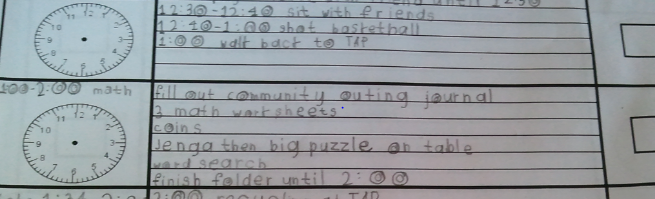 until 12:30
12:30-12:40 sit with friends
12:40-1:00 shot basketball
1:00 walk back to TAP
1:00-2:00 math
fill out community outing journal
3 math worksheets
coins
Jenga then big puzzle on table
word search
finish folder until 2:00
2:00
TAP